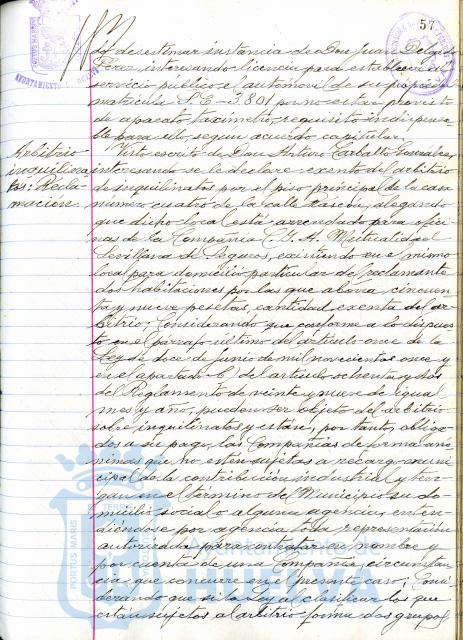 57
PORTUS MARIS
AYUNTAMIENTO
Lo desestimar instancia de Don Juan Delgado
Pérez interesando licencia para establecer al
servicio público el automóvil de su propiedad
matrícula S.E-3.801 por no estar provisto
de aparato taxímetro, requisito indispensa
ble para ello, según acuerdo capitular.
Arbitrio
inquilina
tos: Recla-
mación.
Visto escrito de Don Arturo Carballo González,
interesando se le declare exento del arbitrio
de inquilinatos por el piso principal de la casa
número cuatro de la calle Rascón, alegando
que dicho local está arrendado para ofici
nas de la Compañía C.G.A. Mutualidad
Sevillana de Seguros, existiendo en el mismo
local para domicilio particular del reclamante
dos habitaciones por las que abona cincuen
ta y nueve pesetas, cantidad exenta del ar
bitrio; Considerando que conforme a lo dispues
to en el párrafo último del artículo once de la
Ley de doce de Junio de mil novecientos once y
en el apartado b) del artículo ochenta y dos
del Reglamento de veinte y nueve de igual
mes y año, pueden ser objeto del arbitrio
sobre inquilinatos y están, por tanto, obliga
dos a su pago, las Compañías de forma anó
nimas que no estén sujetas a recargo muni
cipal de la contribución industrial y ten
gan en el término del Municipio su do
micilio social o alguna agencia, enten
diéndose por agencia toda representación
autorizada para contratar a nombre y
por cuenta de una Compañía, circunstan
cia que concurre en el presente caso; Consi
derando que si la Ley al clasificar los que
están sujetos al arbitrio forma dos grupos
PORTUS MARIS
Ayuntamiento de
HUELVA